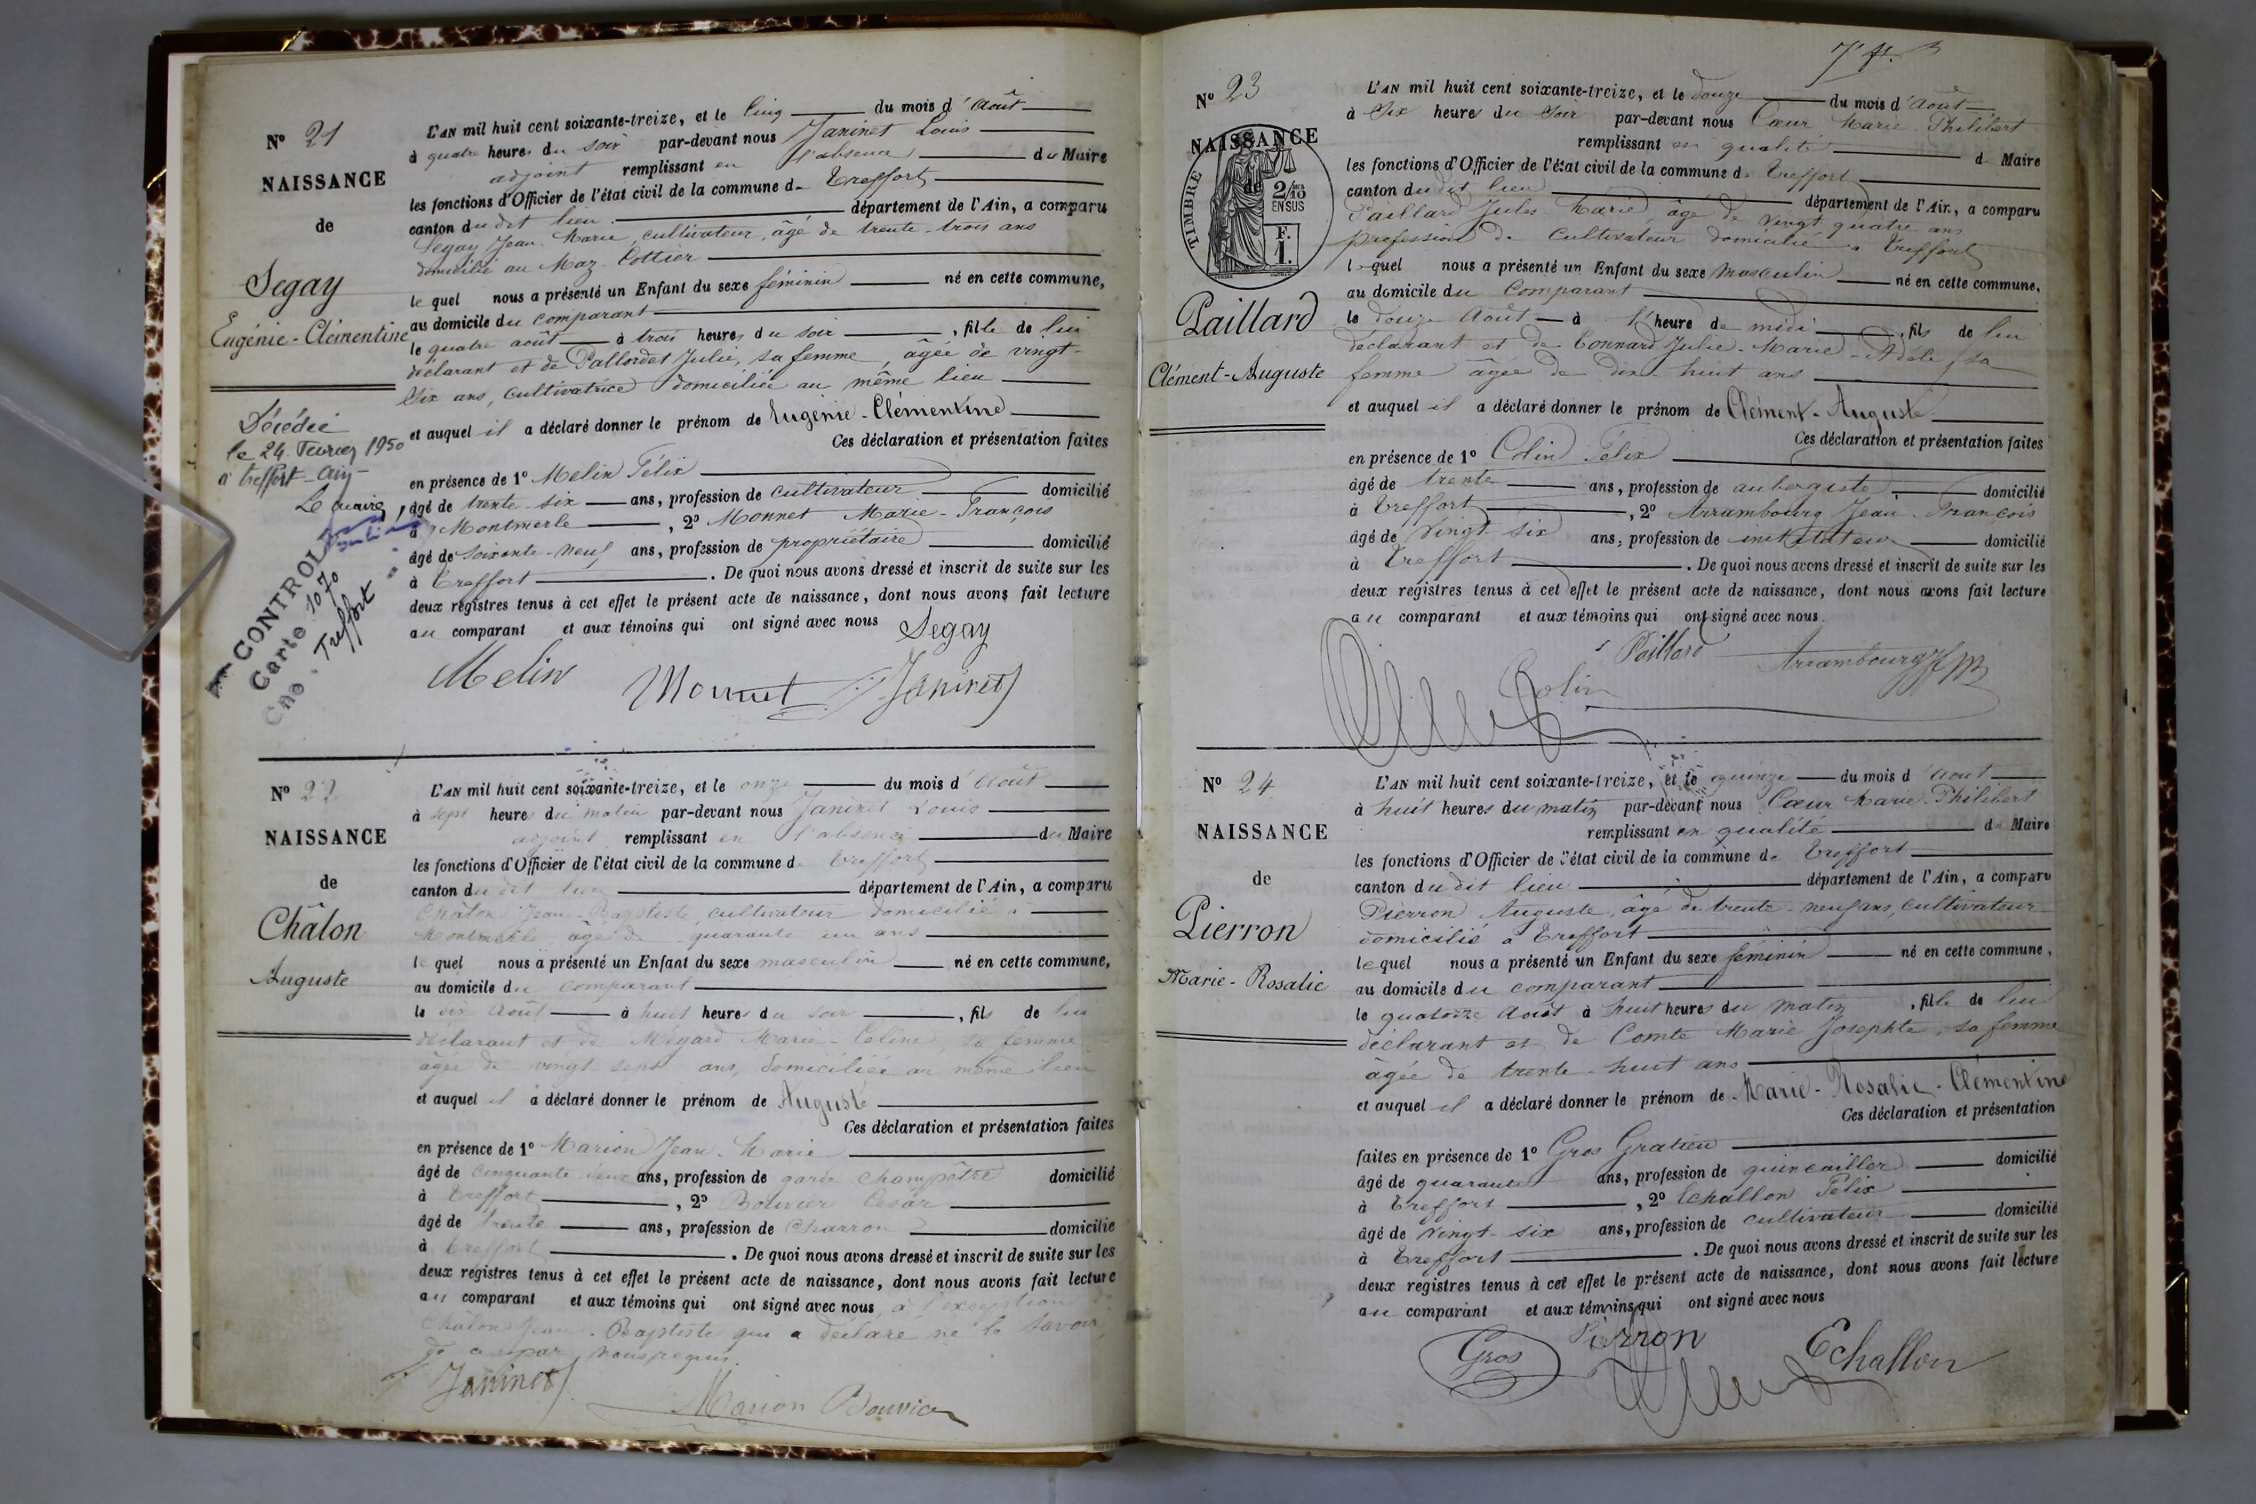 Nº 21
NAISSANCE
de
Segay
Eugénie-Clémentine
Décédée
le 24 Fevrier 1950
à Treffort-Ain
Le maire,
CONTROL
Carte 1070
Cne. Treffort
L'AN mil huit cent soixante-treize, et le cinq du mois d'Août
à quatre heures du soir par-devant nous Janinet Louis
adjoint remplissant en l'absence du Maire
les fonctions d'Officier de l'état civil de la commune de Treffort
canton du dit lieu département de l'Ain, a comparu
Segay Jean Marie, cultivateur, âgé de trente-trois ans
domicilié au Maz Cottier
lequel nous a présenté un Enfant du sexe féminin né en cette commune,
au domicile du comparant
le quatre août à trois heures du soir, fille de lui
déclarant et de Pallordet Julie, sa femme, âgée de vingt-
six ans, cultivatrice domiciliée au même lieu
et auquel il a déclaré donner le prénom de Eugénie-Clémentine
Ces déclaration et présentation faites
en présence de 1º Melin Félix
âgé de trente-six ans, profession de cultivateur domicilié
à Montmerle, 2º Monnet Marie-François
âgé de soixante-neuf ans, profession de propriétaire domicilié
à Treffort. De quoi nous avons dressé et inscrit de suite sur les
deux registres tenus à cet effet le présent acte de naissance, dont nous avons fait lecture
au comparant et aux témoins qui ont signé avec nous
Segay
Melin Monnet Janinet
Nº 22
NAISSANCE
de
Châlon
Auguste
L'AN mil huit cent soixante-treize, et le onze du mois d'Août
à sept heures du matin par-devant nous Janinet Louis
adjoint remplissant en l'absence du Maire
les fonctions d'Officier de l'état civil de la commune de Treffort
canton du dit lieu département de l'Ain, a comparu
Châlon Jean-Baptiste, cultivateur domicilié à
Montmerle âgé de quarante un ans
lequel nous a présenté un Enfant du sexe masculin né en cette commune,
au domicile du comparant
le dix Août à huit heures du soir, fils de lui
déclarant et de Mégard Marie-Celine sa femme
âgée de vingt sept ans, domiciliée au même lieu
et auquel il a déclaré donner le prénom de Auguste
Ces déclaration et présentation faites
en présence de 1º Marion Jean-Marie
âgé de cinquante deux ans, profession de garde champêtre domicilié
à Treffort, 2º Bouvier César
âgé de trente ans, profession de Charron domicilié
à Treffort. De quoi nous avons dressé et inscrit de suite sur les
deux registres tenus à cet effet le présent acte de naissance, dont nous avons fait lecture
au comparant et aux témoins qui ont signé avec nous à l'exception de
Châlon Jean-Baptiste qui a déclaré ne le savoir
de ce par nous requis.
Janinet Marion Bouvier
Nº 23
NAISSANCE
de
TIMBRE
2/10
EN SUS
F.
1.
Paillard
Clément-Auguste
L'AN mil huit cent soixante-treize, et le douze du mois d'Août
à six heures du soir par-devant nous Cœur Marie Philibert
remplissant en qualité de Maire
les fonctions d'Officier de l'état civil de la commune de Treffort
canton du dit lieu département de l'Ain, a comparu
Paillard Jules Marie, âgé de vingt quatre ans
profession de cultivateur domicilié à Treffort
lequel nous a présenté un Enfant du sexe masculin né en cette commune.
au domicile du comparant
le douze Août à l'heure de midi, fils de lui
déclarant et de Connard Julie-Marie-Adèle sa
femme âgée de dix-huit ans
et auquel il a déclaré donner le prénom de Clément-Auguste
Ces déclaration et présentation faites
en présence de 1º Colin Félix
âgé de trente ans, profession de aubergiste domicilié
à Treffort, 2º Arrambourg Jean François
âgé de vingt-six ans, profession de instituteur domicilié
à Treffort. De quoi nous avons dressé et inscrit de suite sur les
deux registres tenus à cet effet le présent acte de naissance, dont nous avons fait lecture
au comparant et aux témoins qui ont signé avec nous.
Paillard Arrambourg
Colin
Nº 24
NAISSANCE
de
Pierron
Marie-Rosalie
L'AN mil huit cent soixante-treize, et le quinze du mois d'Août
à huit heures du matin par-devant nous Cœur Marie Philibert
remplissant en qualité de Maire
les fonctions d'Officier de l'état civil de la commune de Treffort
canton du dit lieu département de l'Ain, a comparu
Pierron Auguste, âgé de trente-neuf ans, cultivateur
domicilié à Treffort
lequel nous a présenté un Enfant du sexe féminin né en cette commune,
au domicile du comparant
le quatorze Août à huit heures du matin, fille de lui
déclarant et de Comte Marie Josephte, sa femme
âgée de trente-huit ans
et auquel il a déclaré donner le prénom de Marie-Rosalie-Clémentine
Ces déclaration et présentation
faites en présence de 1º Gros Gratien
âgé de quarante ans, profession de quincailler domicilié
à Treffort, 2º Echallon Félix
âgé de vingt-six ans, profession de cultivateur domicilié
à Treffort. De quoi nous avons dressé et inscrit de suite sur les
deux registres tenus à cet effet le présent acte de naissance, dont nous avons fait lecture
au comparant et aux témoins qui ont signé avec nous
Gros Pierron Echallon